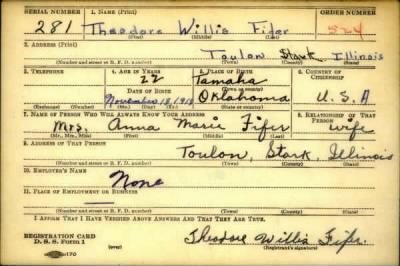 SERIAL NUMBER 1. NAME (Print) ORDER NUMBER
281 Theodore Willis Fifer 524
(First) (Middle) (Last)
2. ADDRESS (Print)
Toulon Stark Illinois
(Number and street or R. F. D. number) (Town) (County) (State)
3. TELEPHONE 4. AGE IN YEARS 5. PLACE OF BIRTH 6. COUNTRY OF CITIZENSHIP
22 Tamaha
DATE OF BIRTH (Town or county)
November 18, 1918 Oklahoma U.S.A
(Exchange) (Number) (Mo.) (Day) (Yr.) (State or country)
7. NAME OF PERSON WHO WILL ALWAYS KNOW YOUR ADDRESS 8. RELATIONSHIP OF THAT PERSON
Mrs. Anna Marie Fifer wife
(Mr., Mrs., Miss) (First) (Middle) (Last)
9. ADDRESS OF THAT PERSON
Toulon, Stark, Illinois
(Number and street or R. F. D. number) (Town) (County) (State)
10. EMPLOYER'S NAME
None
11. PLACE OF EMPLOYMENT OR BUSINESS
(Number and street or R. F. D. number) (Town) (County) (State)
I AFFIRM THAT I HAVE VERIFIED ABOVE ANSWERS AND THAT THEY ARE TRUE.
REGISTRATION CARD
D. S. S. Form 1 Theodore Willis Fifer.
(Registrant's signature)